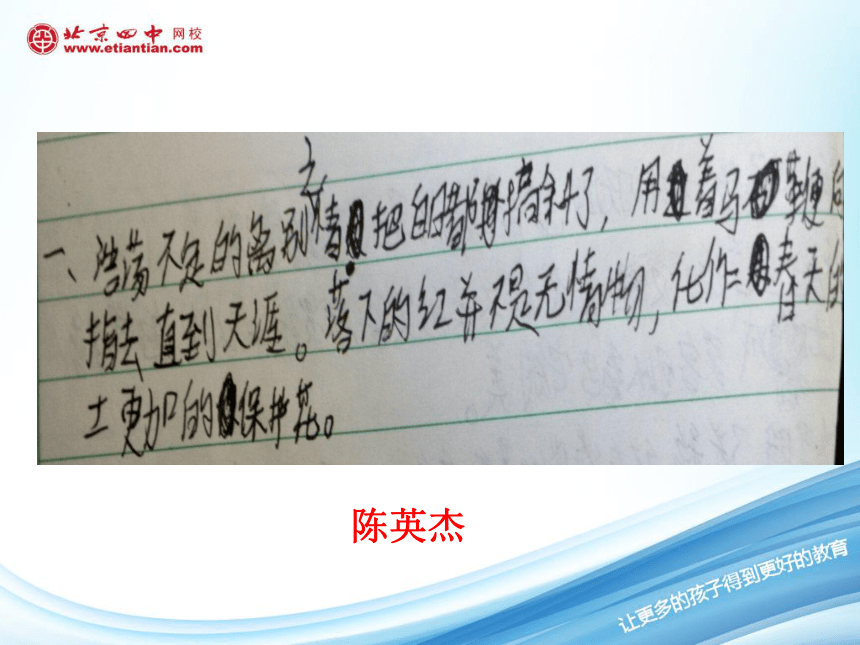 北京四中 网校
www.etiantian.com
一、浩荡不定的离别之情把白日都搞斜了，用着马鞭向
指去直到天涯。落下的红并不是无情物，化作春天的
土更加的保护花。
陈英杰
让更多的孩子得到更好的教育